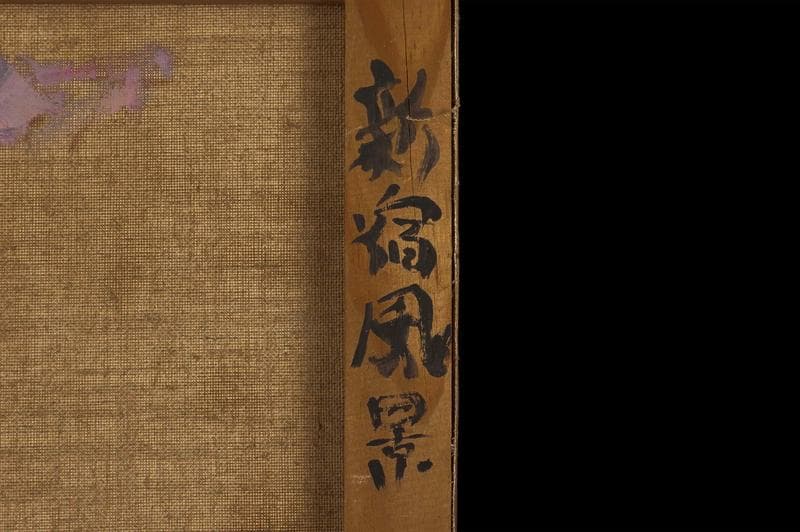 新宿風景